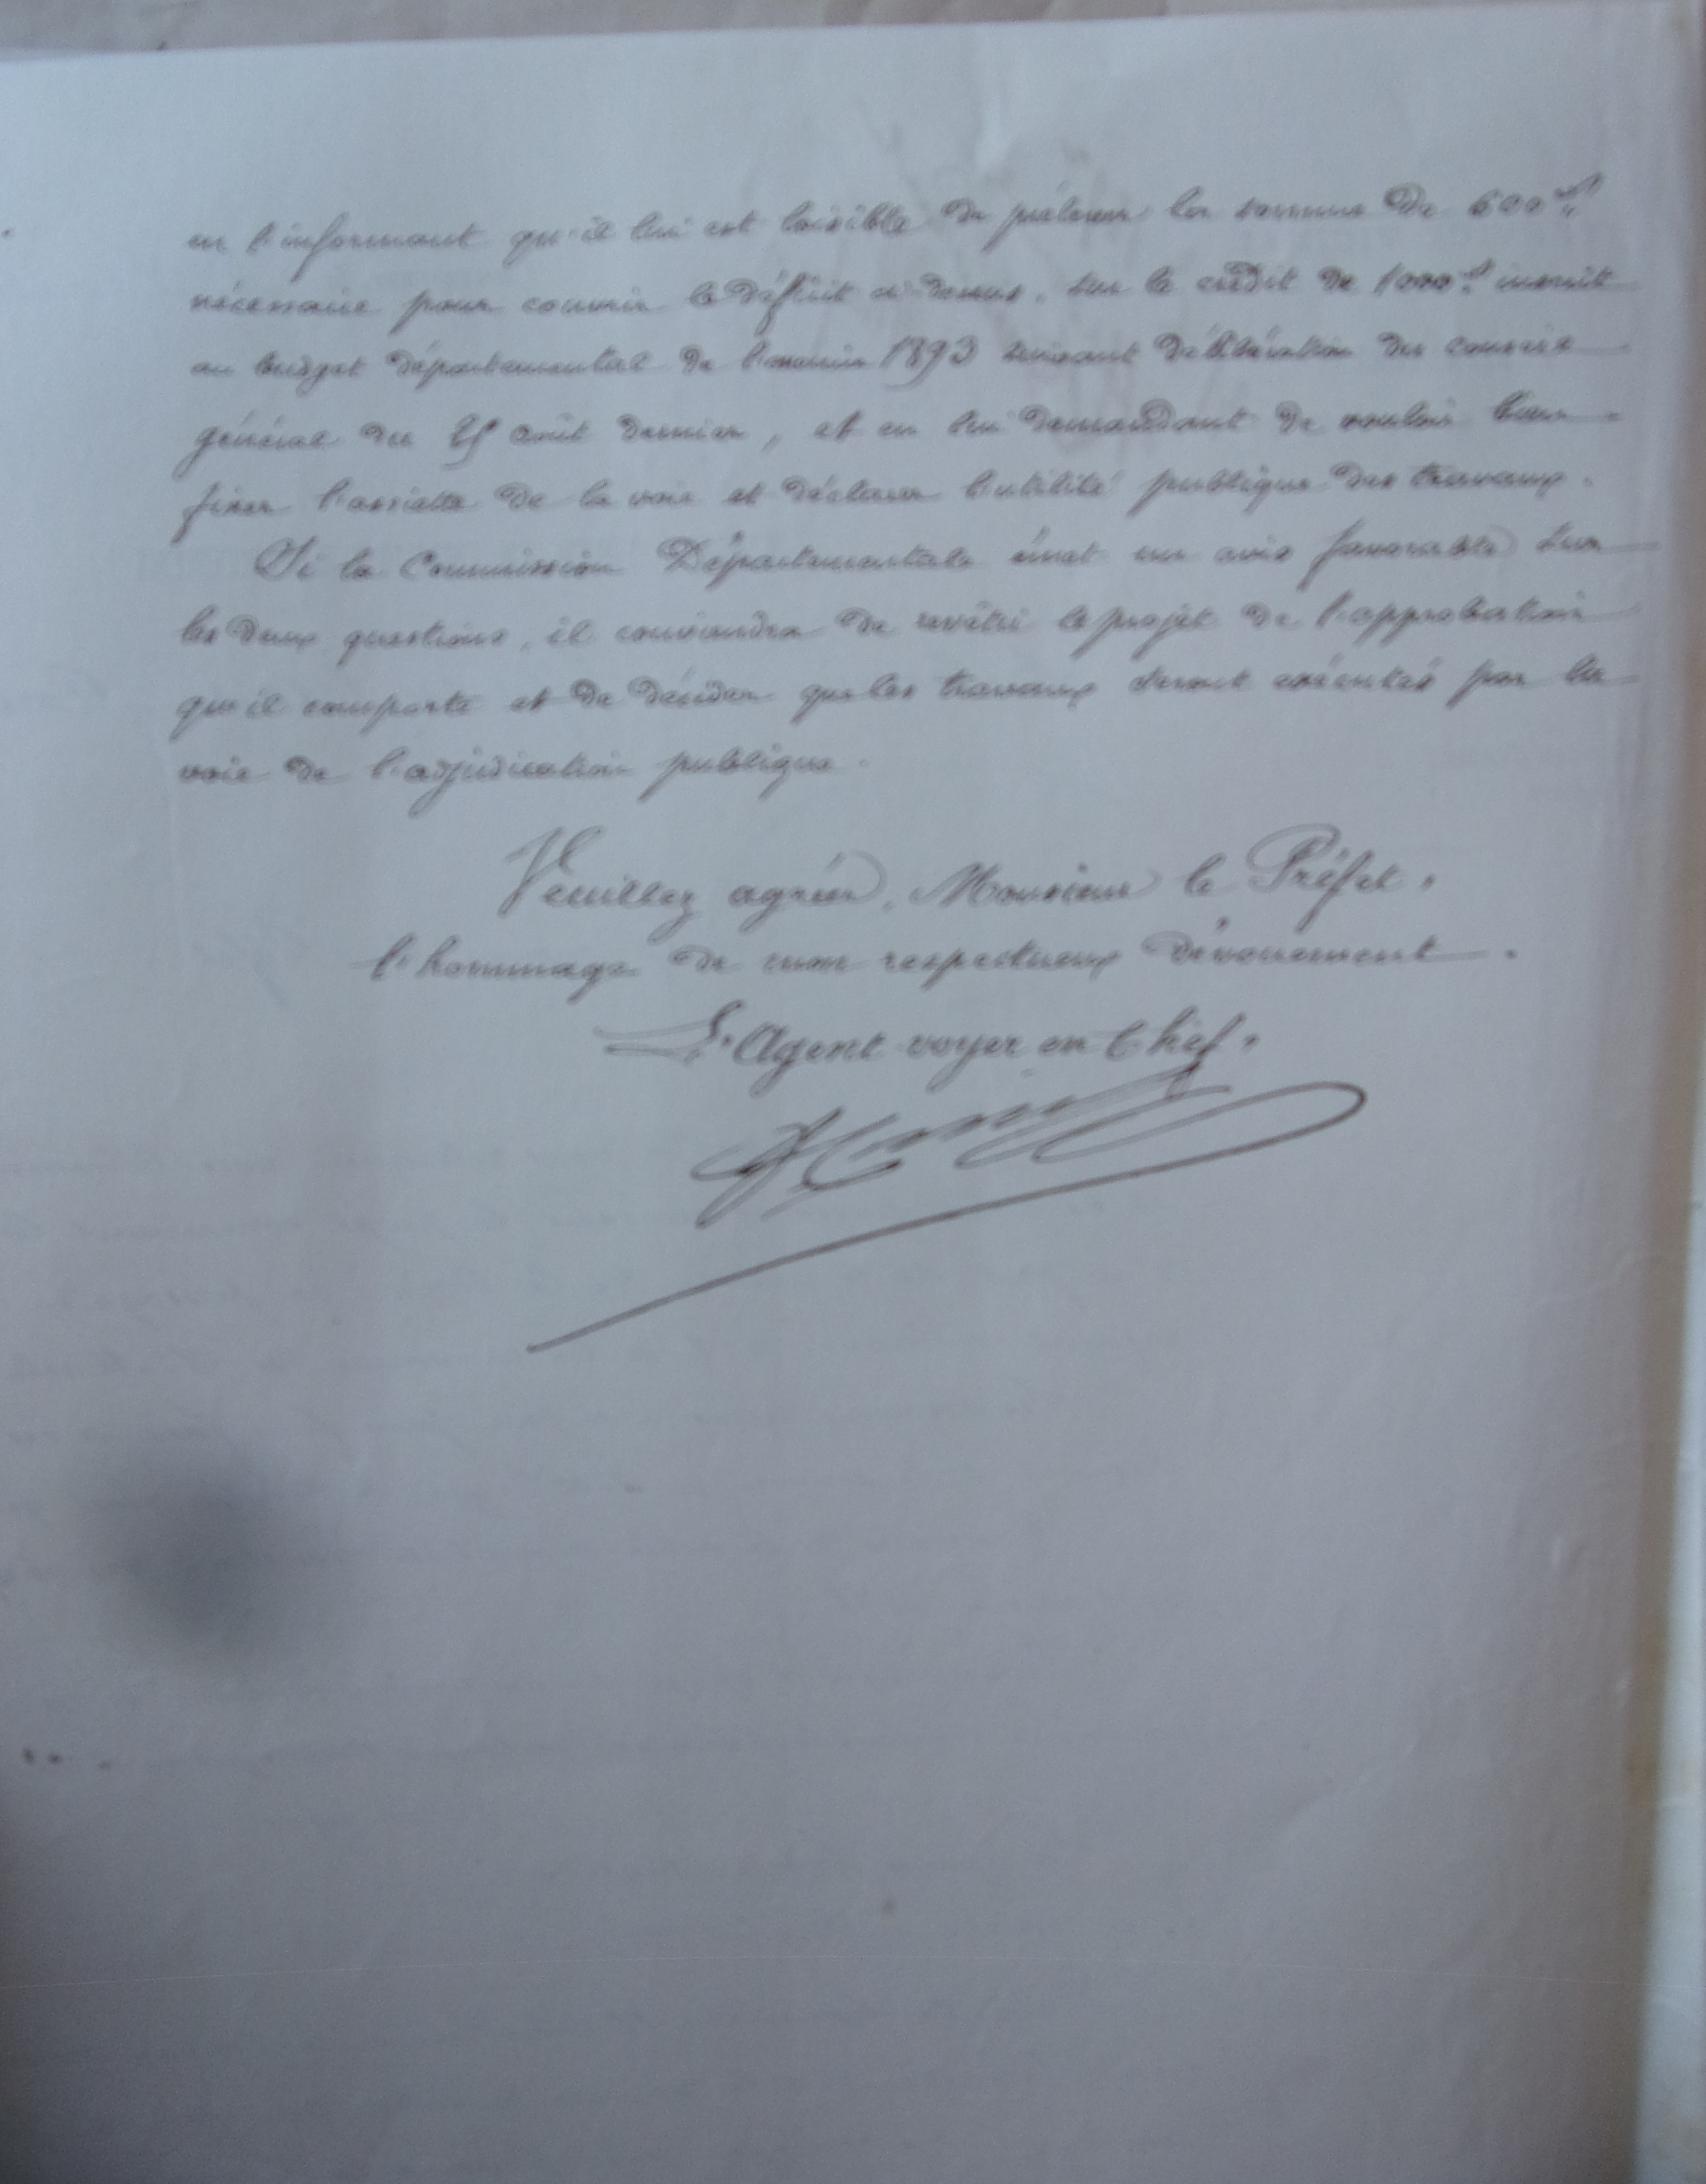 en l'informant qu'il lui est loisible de prélever la somme de 600 f
nécessaire pour couvrir le déficit ci-dessus, sur le crédit de 1000 f inscrit
au budget départemental de l'exercice 1893 suivant délibération du conseil
général du août dernier, et en lui demandant de vouloir bien
fixer l'assiette de la voie et déclarer l'utilité publique des travaux.
Si la Commission Départementale émet un avis favorable sur
les deux questions, il conviendra de revêtir le projet de l'approbation
qu'il comporte et de décider que les travaux seront exécutés par la
voie de l'adjudication publique.
Veuillez agréer, Monsieur le Préfet,
l'hommage de mon respectueux dévouement.
L'Agent voyer en Chef,